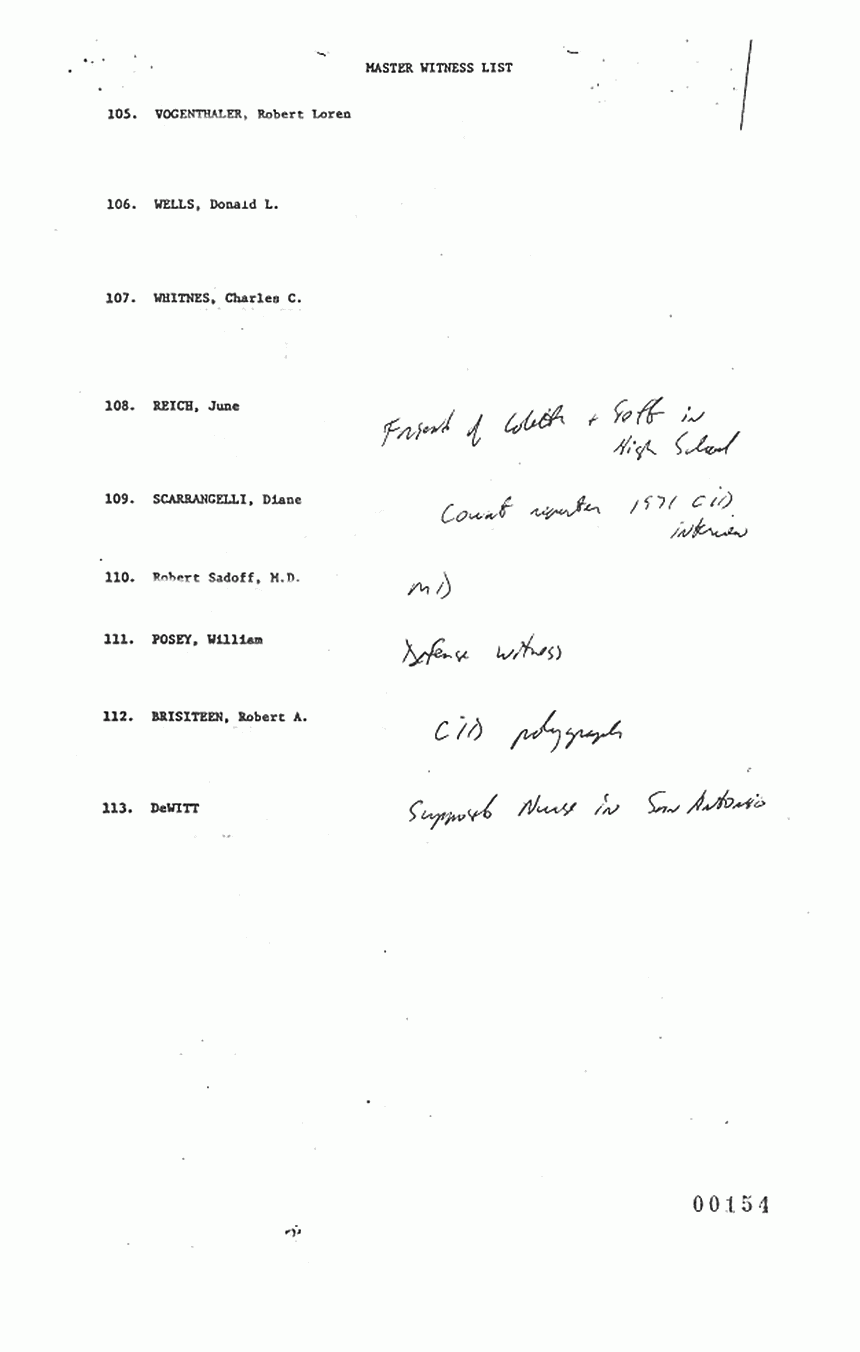 MASTER WITNESS LIST
105. VOGENTHALER, Robert Loren
106. WELLS, Donald L.
107. WHITNES, Charles C.
108. REICH, June
Friend of Colette + Jeff in
High School
109. SCARRANGELLI, Diane
Court reporter 1971 CID
interview
110. Robert Sadoff, M.D.
MD
111. POSEY, William
Defense witness
112. BRISITEEN, Robert A.
CID polygraph
113. DeWITT
Nurse in San Antonio
00154